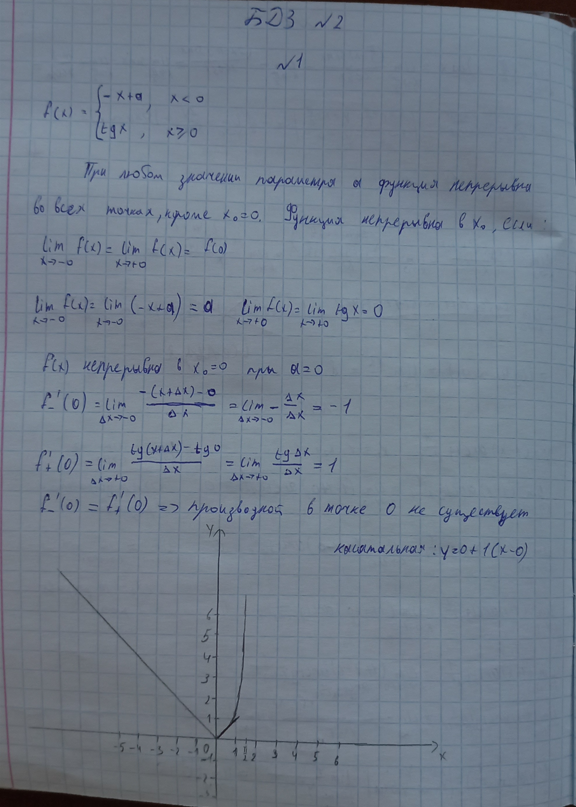 БДЗ №2
№1
f(x) = { -x+a, x<0
tgx, x⩾0
При любом значении параметра a функция непрерывна
во всех точках, кроме x₀=0. Функция непрерывна в x₀, если:
lim x→-0 f(x) = lim x→+0 f(x) = f(0)
lim x→-0 f(x) = lim x→-0 (-x+a) = a lim x→+0 f(x) = lim x→+0 tgx = 0
f(x) непрерывна в x₀=0 при a=0
f₋'(0) = lim Δx→-0 (-(x+Δx)-0)/Δx = lim Δx→-0 -Δx/Δx = -1
f₊'(0) = lim Δx→+0 (tg(x+Δx)-tg0)/Δx = lim Δx→+0 tgΔx/Δx = 1
f₋'(0) = f₊'(0) => производной в точке 0 не существует
касательная: y=0+1(x-0)
y
6
5
4
3
2
1
-5 -4 -3 -2 -1 0 1 2 3 4 5 6 x
-1
-2